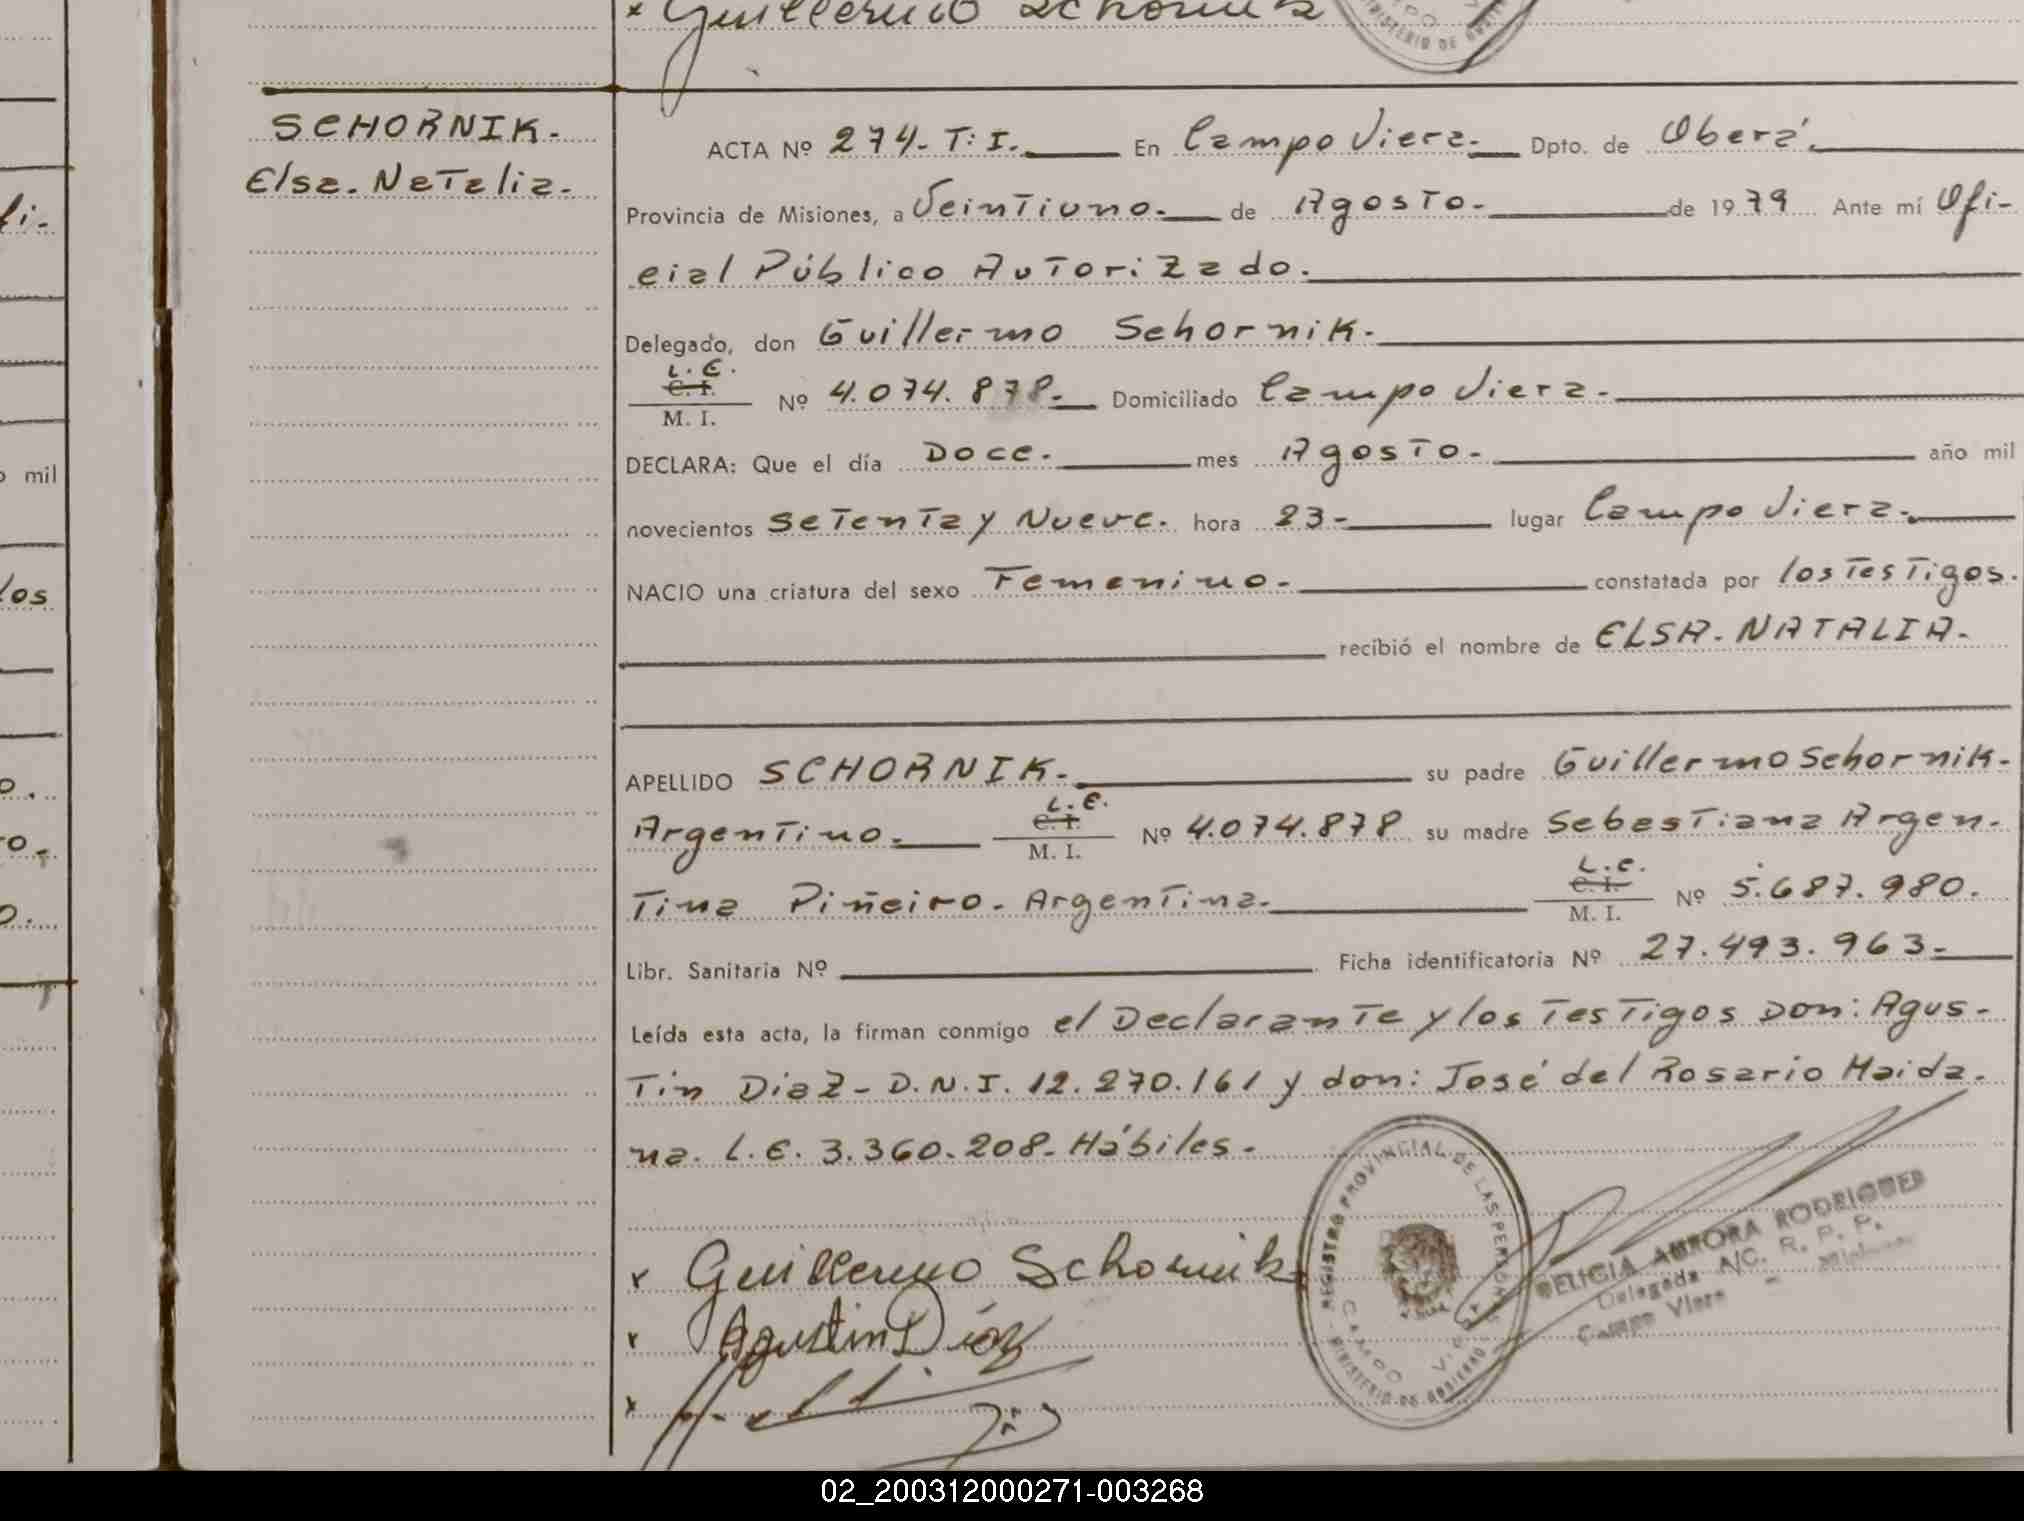 x Guillermo Schornik
MINISTERIO DE
SCHORNIK.
Elsa. Natalia.
ACTA Nº 274- T: I. En Campo Viera. Dpto. de Oberá.
Provincia de Misiones, a Veintiuno. de Agosto. de 1979 Ante mí Ofi-
cial Público Autorizado.
Delegado, don Guillermo Schornik.
L. E.
C. I.
M. I. Nº 4.074.878. Domiciliado Campo Viera.
DECLARA: Que el día Doce. mes Agosto. año mil
novecientos Setenta y Nueve. hora 23- lugar Campo Viera.
NACIO una criatura del sexo Femenino. constatada por los Testigos.
recibió el nombre de ELSA. NATALIA.
APELLIDO SCHORNIK. su padre Guillermo Schornik.
Argentino. L. E. C. I. M. I. Nº 4.074.878 su madre Sebastiana Argen-
tina Piñeiro. Argentina. L. C. C. I. M. I. Nº 5.687.980.
Libr. Sanitaria Nº Ficha identificatoria Nº 27.493.963-
Leída esta acta, la firman conmigo el Declarante y los Testigos Don: Agus-
tín Diaz- D.N.I. 12.270.161 y don: José del Rosario Maida-
na. L.E. 3.360.208- Hábiles.
x Guillermo Schornik
x Agustin Díaz
x
REGISTRO PROVINCIAL DE LAS PERSONAS
MINISTERIO DE GOBIERNO
CAMPO VIERA
AURORA RODRIGUEZ
Delegada A/C. R. P. P.
Campo Viera - Misiones
fi-
o mil
los
o.
ro.
o.
02_200312000271-003268